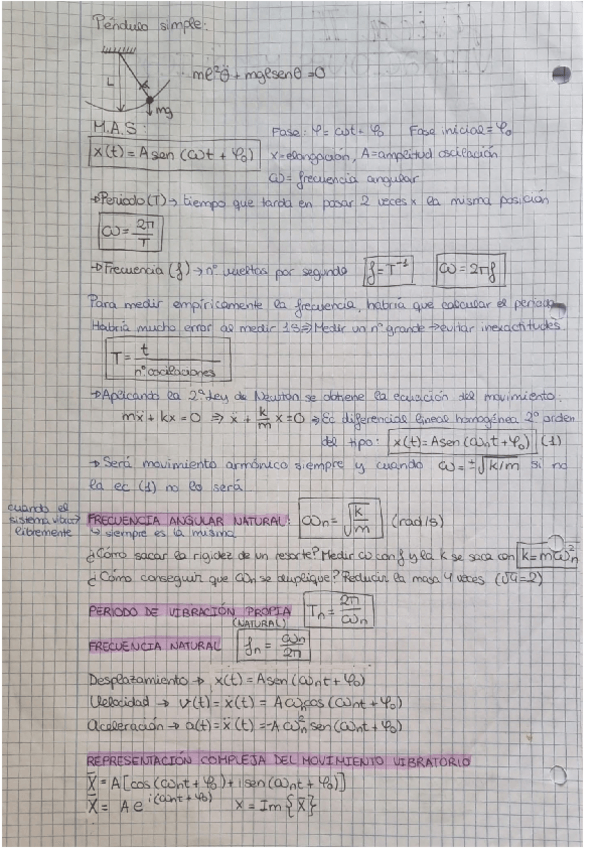 Péndulo simple:
L
mg
mℓ²θ̈ + mgℓsenθ = 0
M.A.S:
Fase: φ = ωt + φ₀ Fase inicial = φ₀
x(t) = A sen (ωt + φ₀)
x = elongación, A = amplitud oscilación
ω = frecuencia angular
→ Periodo (T) → tiempo que tarda en pasar 2 veces x la misma posición
ω = 2π/T
→ Frecuencia (f) → nº vueltas por segundo f = T⁻¹ ω = 2πf
Para medir empíricamente la frecuencia, habría que calcular el periodo
Habría mucho error al medir 1s ⇒ Medir un nº grande → evitar inexactitudes
T = t / nº oscilaciones
→ Aplicando la 2ª Ley de Newton se obtiene la ecuación del movimiento:
mẍ + kx = 0 ⇒ ẍ + k/m x = 0 ⇒ Ec diferencial lineal homogénea 2º orden
del tipo: x(t) = A sen (ωnt + φ₀) (1)
→ Será movimiento armónico siempre y cuando ω = ±√k/m si no
la ec (1) no lo será
cuando el
sistema
libremente
FRECUENCIA ANGULAR NATURAL: ωn = √k/m (rad/s)
↳ siempre es la misma
¿Cómo sacar la rigidez de un resorte? Medir ω con f y la k se saca con k = mωn²
¿Cómo conseguir que ωn se duplique? Reducir la masa 4 veces (√4 = 2)
PERIODO DE VIBRACIÓN PROPIA Tn = 2π/ωn
(NATURAL)
FRECUENCIA NATURAL fn = ωn/2π
Desplazamiento → x(t) = A sen (ωnt + φ₀)
Velocidad → v(t) = ẋ(t) = Aωn cos (ωnt + φ₀)
Aceleración → a(t) = ẍ(t) = -Aωn² sen (ωnt + φ₀)
REPRESENTACIÓN COMPLEJA DEL MOVIMIENTO VIBRATORIO
X̄ = A [cos (ωnt + φ₀) + i sen (ωnt + φ₀)]
X̄ = A e^i(ωnt + φ₀) x = Im {X̄}